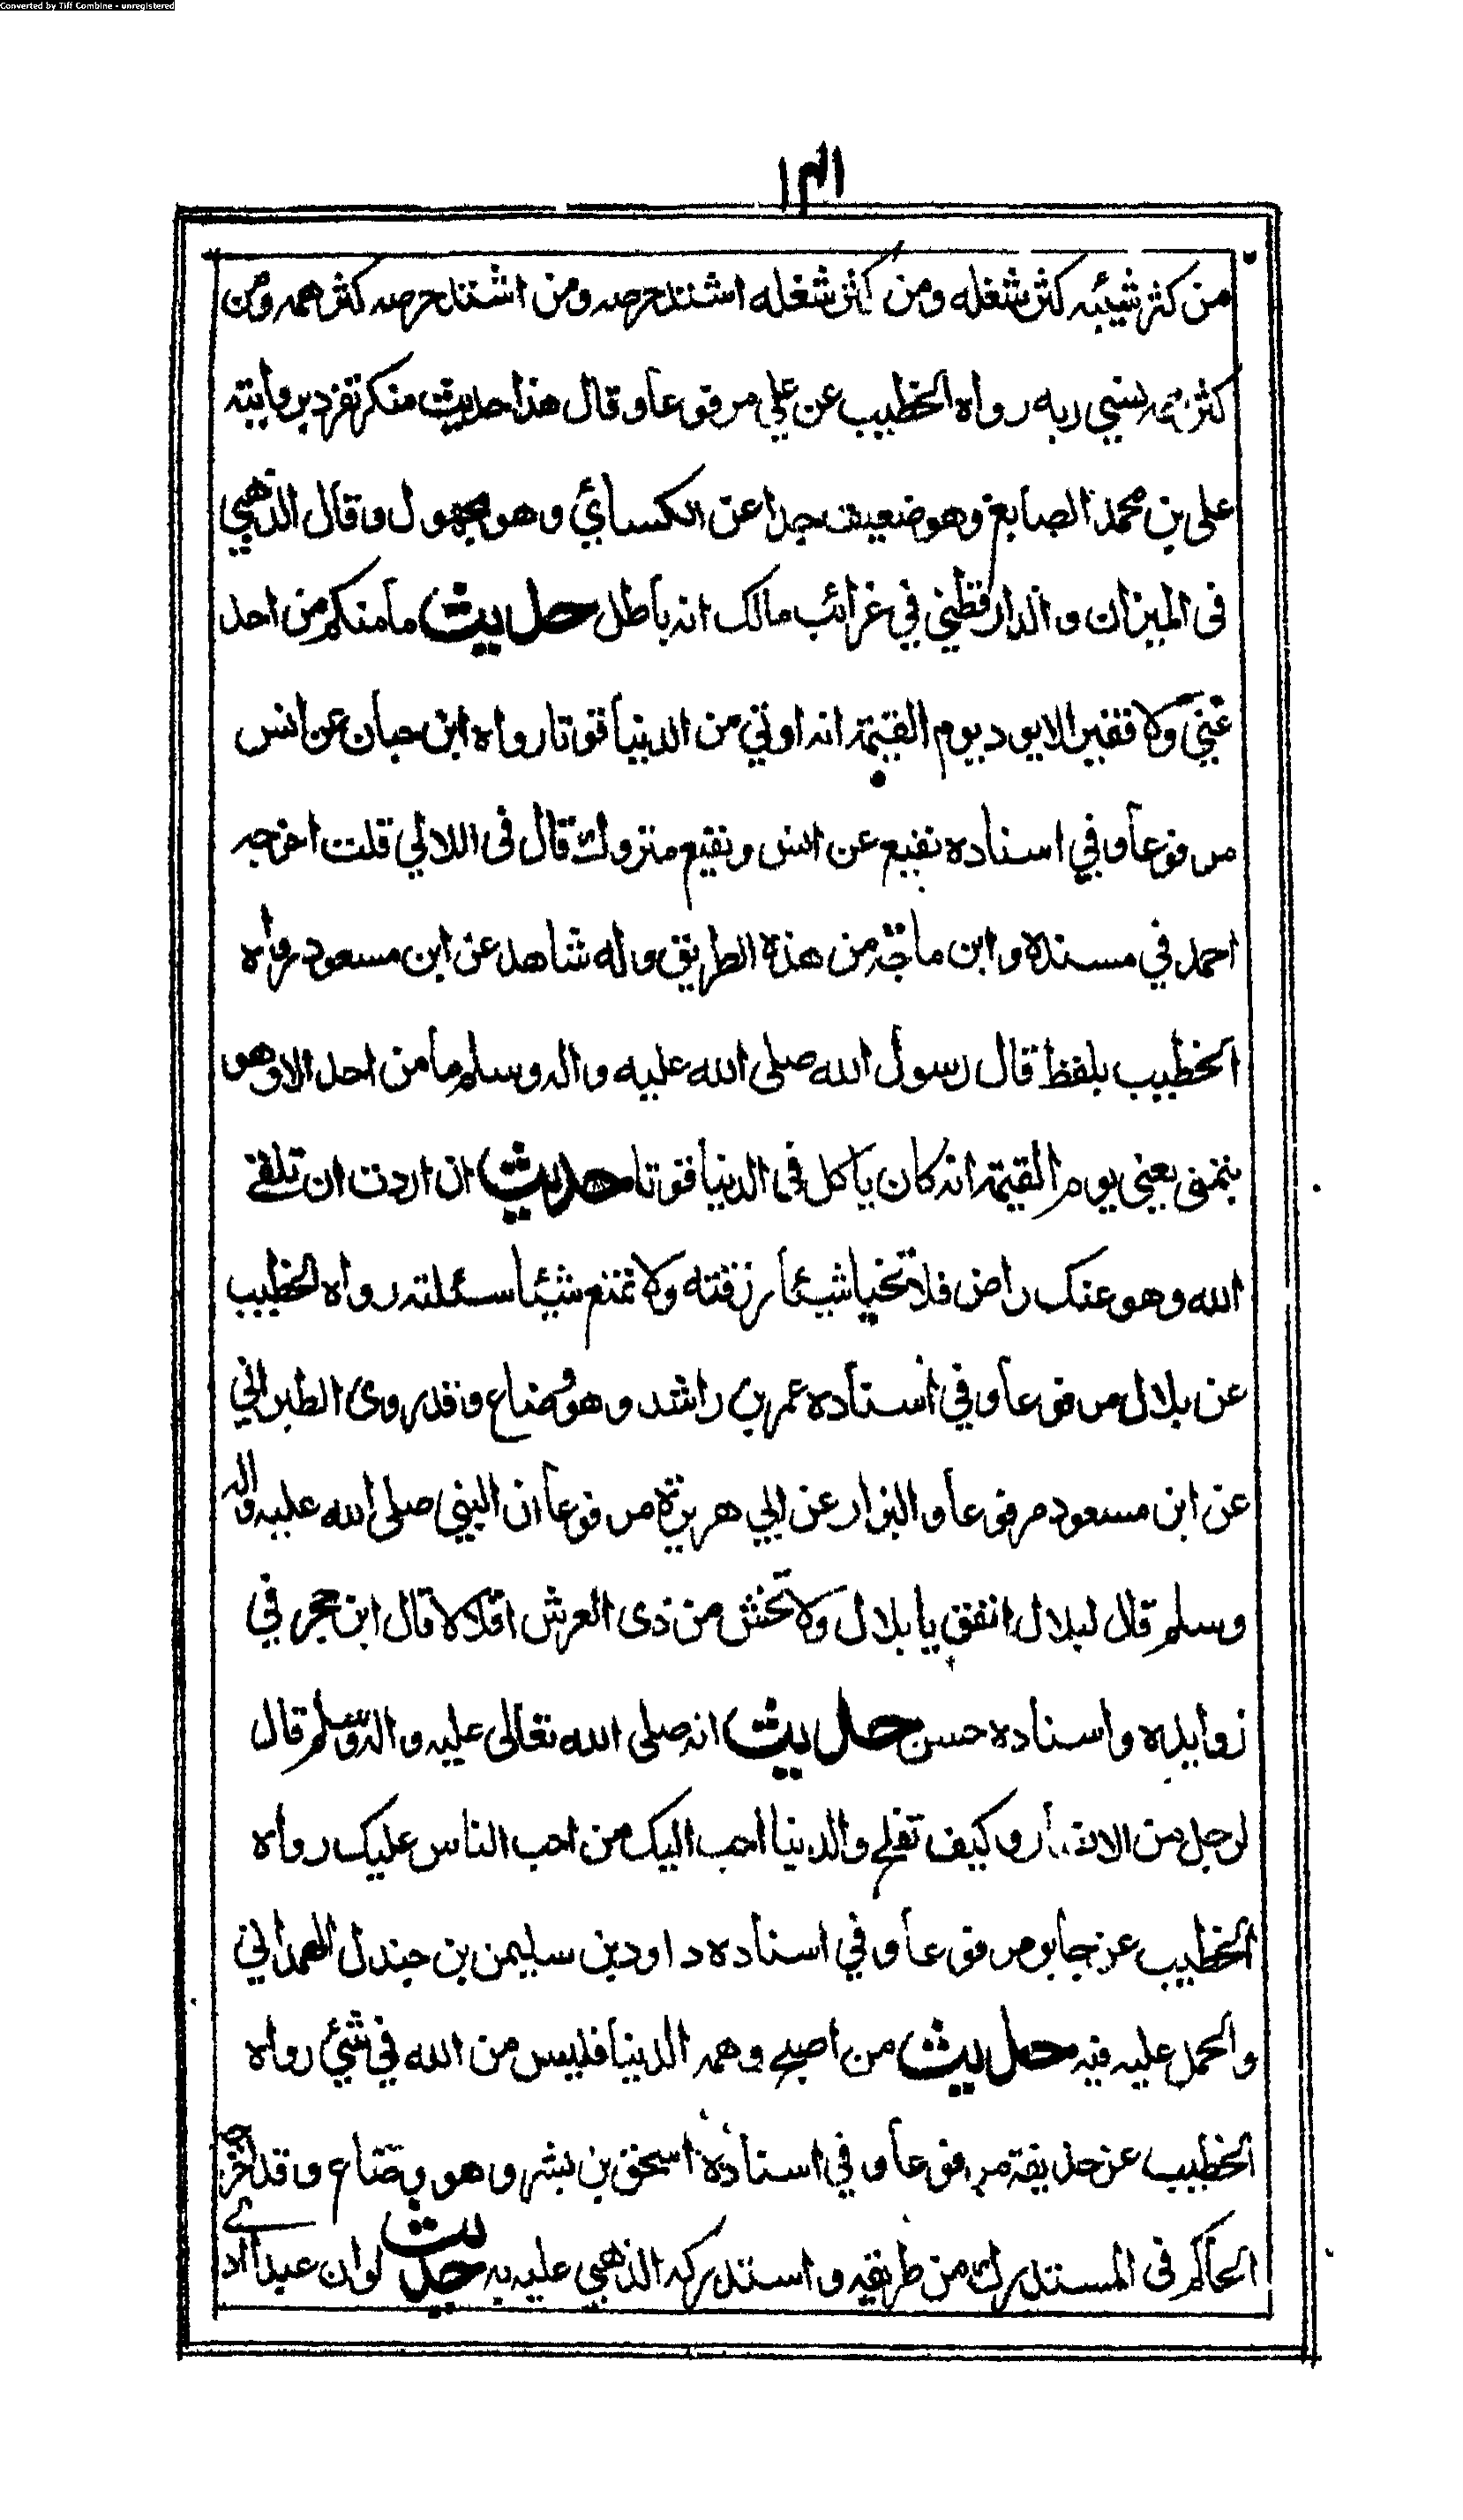 Converted by Tiff Combine - unregistered
١٣١
من كثر شيئه كثر شغله ومن كثر شغله اشتد حرصه ومن اشتد حرصه كثر همه ومن
كثر همه نسي ربه رواه الخطيب عن علي مرفوعا وقال هذا حديث منكر تفرد بروايته
على بن محمد الصايغ وهو ضعيف جدا عن الكسائي وهو مجهول وقال الذهبي
فى الميزان والدارقطني في غرائب مالك انه باطل حديث ما منكم من احد
غني ولا فقير الا يود يوم القيمة انه اوتي من الدنيا قوتا رواه ابن حبان عن انس
مرفوعا وفي اسناده نفيع عن انس ونفيع متروك قال فى اللالي قلت اخرجه
احمد في مسنده وابن ماجة من هذه الطريق وله شاهد عن ابن مسعود رواه
الخطيب بلفظ قال رسول الله صلى الله عليه واله وسلم ما من احد الا وهو
يتمنى يعني يوم القيمة انه كان ياكل فى الدنيا قوتا حديث ان اردت ان تلقے
الله وهو عنك راض فلا تخبا شيئا رزقته ولا تمنع شيئا سئلته رواه الخطيب
عن بلال مرفوعا وفي اسناده عمر بن راشد وهو وضاع وقد روى الطبراني
عن ابن مسعود مرفوعا والبزار عن ابي هريرة مرفوعا ان النبي صلى الله عليه واله
وسلم قال لبلال انفق يا بلال ولا تخش من ذى العرش اقلالا قال ابن حجر في
زوايده واسناده حسن حديث انه صلى الله تعالى عليه واله وسلم قال
لرجل من وكيف تفلح والدنيا احب اليك من احب الناس عليك رواه
الخطيب عن جابر مرفوعا وفي اسناده داود بن سليمن بن جندل الهمداني
والحمل عليه فيه حديث من اصبح وهمه الدنيا فليس من الله في شئي رواه
الخطيب عن حذيفة مرفوعا وفي اسناده اسحق بن بشر وهو وضاع وقد اخرجه
الحاكم فى المستدرك من طريقه واستدركه الذهبي عليه به حديث لو ان عبدا اد